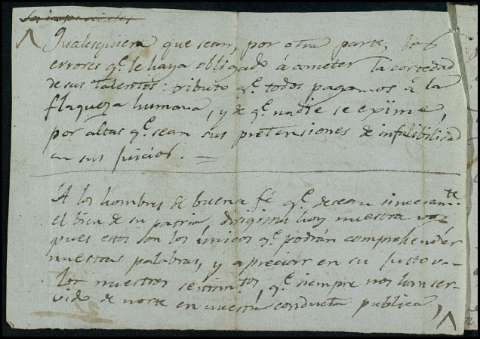 Qualesquiera que sean, por otra parte, los
errores q.e le haya obligado á cometer la cortedad
de sus talentos: tributo q.e todos pagamos á la
flaqueza humana, y de q.e nadie se exîme,
por altas q.e sean sus pretensiones de infalibilidad
en sus juicios. =
A los hombres de buena fé q.e desean sinceram.te
el bien de su patria, dirigimos hoy nuestra voz
pues estos son los únicos q.e podrán comprehender
nuestras palabras, y apreciar en su justo va-
lor nuestros sentim.tos q.e siempre nos han ser-
vido de norte en nuestra conducta publica,